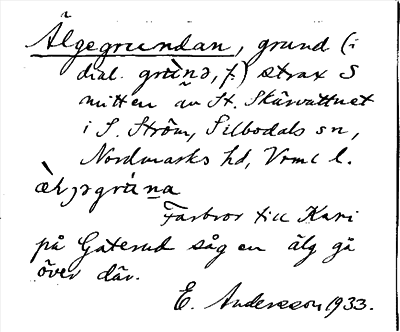 Älgegrundan, grund (i
dial. grùnə, f.) strax S
mitten av St. Skärvattnet
i S. Ström, Silbodals sn,
Nordmarks hd, Vrml l.
æ̀ljəgrùna
Farbror till Kari
på Gaterud såg en älg gå
över där.
E. Andersson 1933.